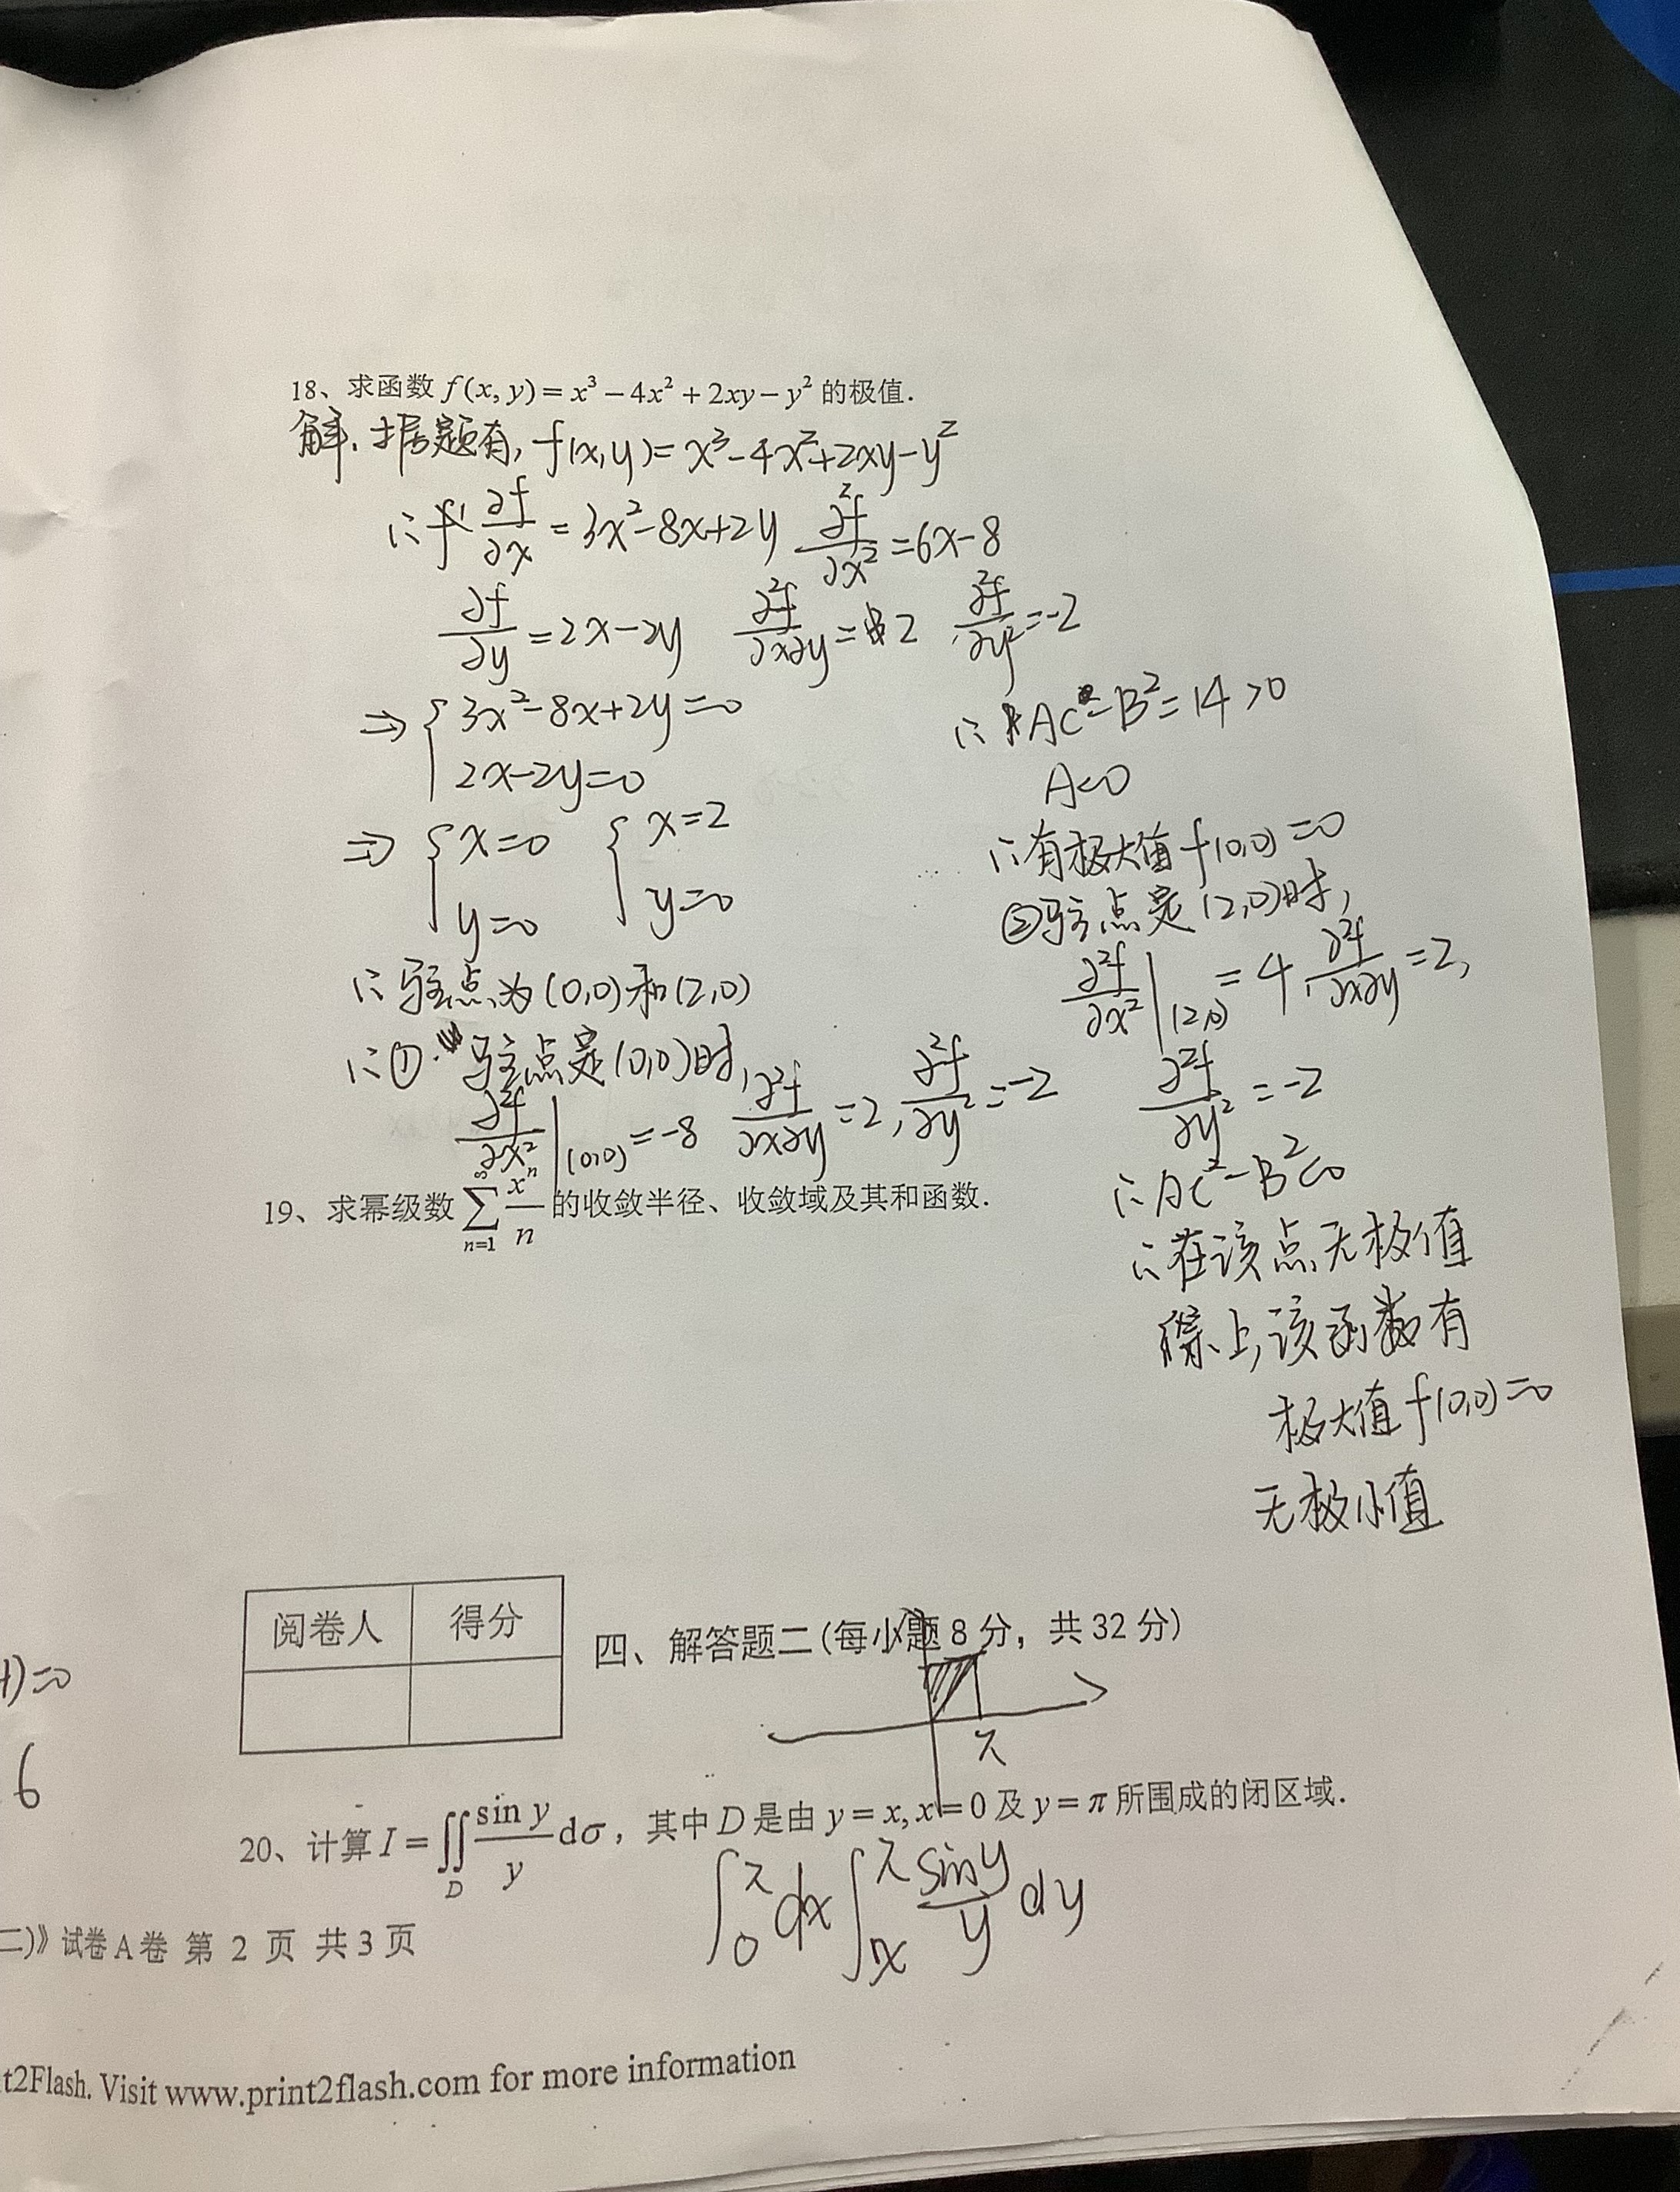 18、求函数 f(x, y) = x³ − 4x² + 2xy − y² 的极值.
解.据题有, f(x,y) = x³-4x²+2xy-y²
∴ ∂f/∂x = 3x²-8x+2y ∂²f/∂x² = 6x-8
∂f/∂y = 2x-2y ∂²f/∂x∂y = 2 ∂²f/∂y² = -2
⇒ { 3x²-8x+2y=0
2x-2y=0
⇒ { x=0 { x=2
y=0 y=0
∴ 驻点为(0,0)和(2,0)
∴ ① 驻点是(0,0)时,
∂²f/∂x² |(0,0) = -8 ∂²f/∂x∂y = 2, ∂²f/∂y² = -2
∴ AC-B²=14>0
A<0
∴有极大值f(0,0)=0
②驻点是(2,0)时,
∂²f/∂x² |(2,0) = 4 ∂²f/∂x∂y = 2,
∂²f/∂y² = -2
∴ AC²-B²<0
∴在该点无极值
综上,该函数有
极大值f(0,0)=0
无极小值
19、求幂级数 ∑_{n=1}^{∞} xⁿ/n 的收敛半径、收敛域及其和函数.
阅卷人 得分
四、解答题二(每小题 8 分，共 32 分)
π
1)=0
6
20、计算 I = ∬_D (sin y / y) dσ，其中 D 是由 y = x, x = 0 及 y = π 所围成的闭区域.
∫₀^π dx ∫ₓ^π (sin y / y) dy
二)》试卷 A 卷 第 2 页 共 3 页
t2Flash. Visit www.print2flash.com for more information